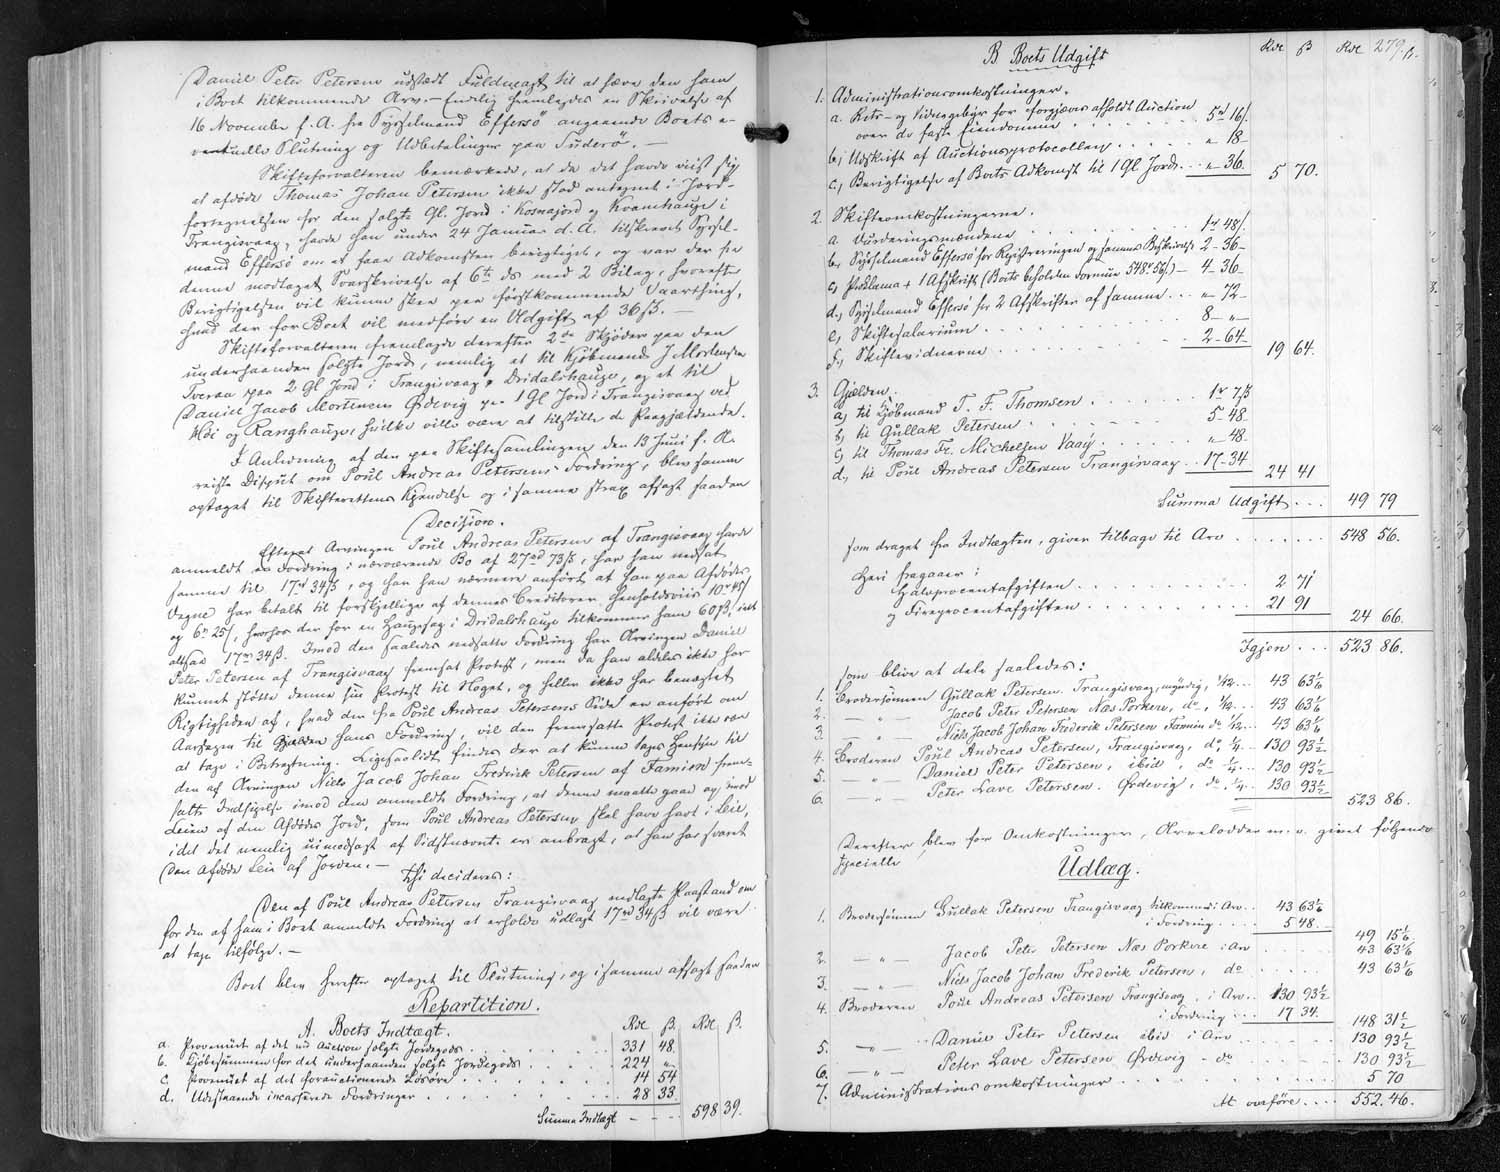 Daniel Peter Petersen udstædt Fuldmagt til at hæve den ham
i Boet tilkommende Arv. — Endelig fremlagdes en Skrivelse af
16 November f. A. fra Sysselmand Effersö angaaende Boets e-
ventuelle Slutning og Udbetalinger paa Suderö. —
Skifteforvalteren bemærkede, at da det havde viist sig
at afdöde Thomas Johan Petersen ikke stod antegnet i Jord-
fortegnelsen for den solgte Gl. Jord i Kosnajord og Kvamhauge i
Trangisvaag, havde han under 24 Januar d. A. tilskrevet Syssel-
mand Effersö om at faae Adkomsten berigtiget, og var der fra
denne modtaget Svarskrivelse af 6te ds med 2 Bilag, hvorefter
Berigtigelsen vil kunne skee paa förstkommende Vaarthing,
hvad der for Boet vil medföre en Udgift af 36 β. —
Skifteforvalteren fremlagde derefter 2de Skjöder paa den
underhaanden solgte Jord, nemlig et til Kjöbmand J. Mortensen
Tveraa paa 2 Gl Jord i Trangisvaag, Dridalshauge, og et til
Daniel Jacob Mortensen Ördevig paa 1 Gl Jord i Trangisvaag ved
Höi og Ranghauge, hvilke ville være at tilstille de Paagjældende.
I Anledning af den paa Skiftesamlingen den 13 Juni f. A.
reiste Disput om Poül Andreas Petersens Fordring, blev samme
optaget til Skifterettens Kjendelse og i samme strax afsagt saadan
Decision.
Efterat Arvingen Poül Andreas Petersen af Trangisvaag havde
anmeldt en Fordring i nærværende Bo af 27 rd 73 β, har han nedsat
samme til 17 rd 34 β, og har han nærmere anfört at han paa Afdödes
Vegne har betalt til forskjellige af dennes Creditorer henholdsviis 10 rd 45 β
og 6 rd 25 β, hvorhos der for en Haugesag i Dridalshauge tilkommer ham 60 β, ialt
altsaa 17 rd 34 β. Imod den saaledes nedsatte Fordring har Arvingen Daniel
Peter Petersen af Trangisvaag fremsat Protest, men da han aldeles ikke har
kunnet stötte denne sin Protest til Noget, og heller ikke har benægtet
Rigtigheden af, hvad der fra Poül Andreas Petersens Side er anfört om
Aarsagen til hans Fordring, vil den fremsatte Protest ikke være
at tage i Betragtning. Ligesaalidt findes der at kunne tages Hensyn til
den af Arvingen Niels Jacob Johan Frederik Petersen af Famien frem-
satte Indsigelse imod den anmeldte Fordring, at denne maatte gaae op mod
Leien af den Afdödes Jord, som Poül Andreas Petersen skal have havt i Leie,
idet det nemlig uimodsagt af Sidstnævnte er anbragt, at han har svaret
den Afdöde Leie af Jorden. —
Thi decideres:
Den af Poül Andreas Petersen Trangisvaag nedlagte Paastand om
for den af ham i Boet anmeldte Fordring at erholde udlagt 17 rd 34 β vil være
at tage tilfölge. —
Boet blev herefter optaget til Slutning, og i samme afsagt saadan
Repartition.
A. Boets Indtægt. Rdl β. Rdl β.
a. Provenuet af det ved Auction solgte Jordegods . . . 331 48.
b. Kjöbesummen for det underhaanden solgte Jordegods . . . 224 "
c. Provenuet af det forauctionerede Lösöre . . . 14 54
d. Udestaaende incasserede Fordringer . . . 28 33
Summa Indtægt — — 598 39.
279.
B Boets Udgift Rdl β Rdl β.
1. Administrationsomkostninger.
a. Rets- og Vidnegebyr for forgjæves afholdt Auction
over de faste Eiendomme . . . 5 rd 16 β.
b, Udskrift af Auctionsprotocollen . . . " 18 —
c, Berigtigelse af Boets Adkomst til 1 Gl Jord . . . " 36. 5 70.
2. Skifteomkostningerne.
a. Vurderingsmændene . . . 1 rd 48 β.
b, Sysselmand Effersö for Registreringen og sammes Beskrivelse 2 — 36 —
c, Proklama + 1 Afskrift (Boets beholdne Formue 548 rd 56 β) — 4 — 36
d, Sysselmand Effersö for 2 Afskrifter af samme . . . " — 72 —
e, Skiftesalarium . . . 8 — " —
f, Skiftevidnerne . . . 2 — 64 19 64.
3. Gjælden.
a, til Kjöbmand T. F. Thomsen . . . 1 rd 7 β
b, til Gullak Petersen . . . 5 48.
c, til Thomas Fr. Michelsen Vaag . . . " — 48.
d, til Poül Andreas Petersen Trangisvaag . . 17 — 34 24 41
Summa Udgift . . . 49 79
som draget fra Indtægten, giver tilbage til Arv . . . 548 56.
Heri fragaaer:
Halvprocentafgiften . . . 2 71
og Fireprocentafgiften . . . 21 91 24 66.
Igjen . . . 523 86.
som blive at dele saaledes:
1. Brodersönnen Gullak Petersen Trangisvaag, myndig, 1/12 . . . 43 63 1/6
2. — " — Jacob Peter Petersen Næs Porkere, do, 1/12 . . . 43 63 1/6
3. — " — Niels Jacob Johan Frederik Petersen Famien do 1/12 . . . 43 63 1/6
4. Broderen Poül Andreas Petersen, Trangisvaag, do 1/4 . . 130 93 1/2
5. — " — Daniel Peter Petersen, ibid, do 1/4 . . . 130 93 1/2
6. — " — Peter Lave Petersen. Ördevig, do 1/4 . . 130 93 1/2
523 86.
Derefter blev for Omkostninger, Arvelodder m. v. givet fölgende
specielle
Udlæg.
1. Brodersönnen Gullak Petersen Trangisvaag tilkommende i Arv . . 43 63 1/6
i Fordring . . . 5 48. 49 15 1/6
2. — " — Jacob Peter Petersen Næs Porkere i Arv . . . 43 63 1/6
3. — " — Niels Jacob Johan Frederik Petersen, do . . . 43 63 1/6
4. Broderen Poül Andreas Petersen Trangisvaag . i Arv. . 130 93 1/2
i Fordring . . . 17 34. 148 31 1/2
5. — " — Daniel Peter Petersen ibid i Arv . . . 130 93 1/2
6. — " — Peter Lave Petersen Ördevig — do . . . 130 93 1/2
7. Administrationsomkostninger . . . 5 70
At overföre . . . . 552. 46.